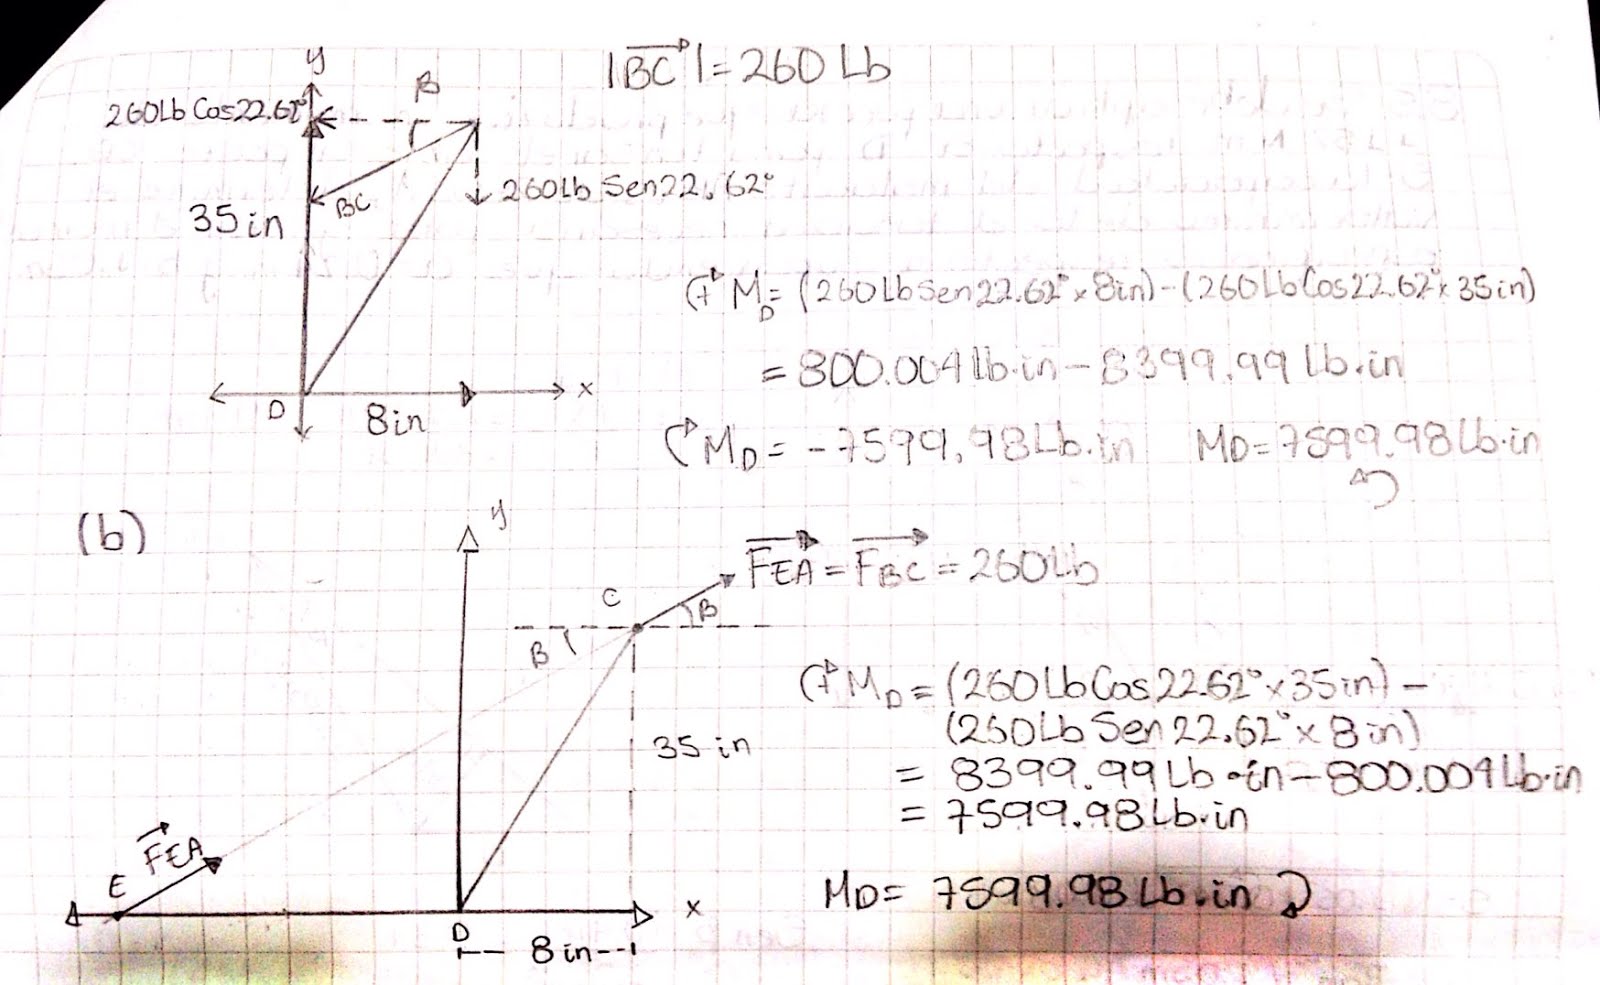 y
|BC| = 260 Lb
260Lb Cos22.62°
B
BC
260Lb Sen22.62°
35 in
D
8in
x
(+ MD = (260LbSen22.62° x 8in) - (260LbCos22.62° x 35in)
= 800.004 lb.in - 8399.99 lb.in
MD = -7599.98Lb.in MD = 7599.98Lb.in
(b)
y
FEA = FBC = 260Lb
C
B
B
(+ MD = (260LbCos22.62° x 35in) -
(260Lb Sen22.62° x 8in)
35 in
= 8399.99Lb.in - 800.004Lb.in
= 7599.98Lb.in
FEA
E
MD = 7599.98 Lb.in
x
D
8in